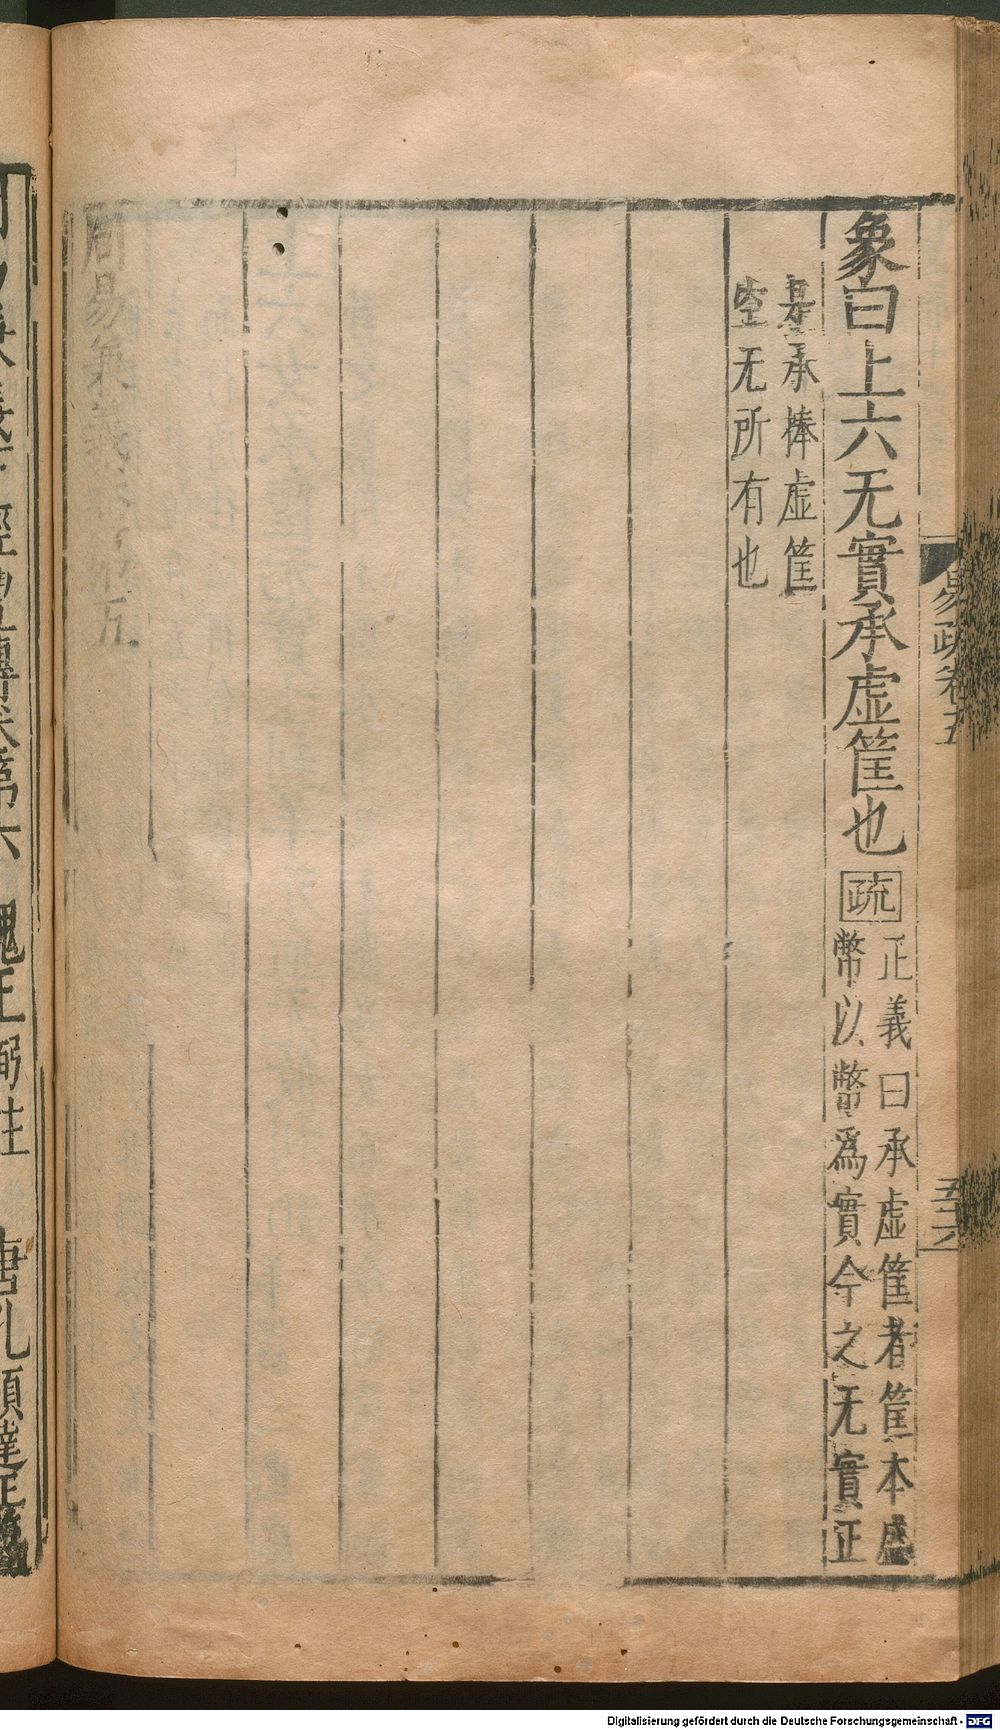 易疏卷五
五十六
象曰上六无實承虛筐也 疏 正義曰承虛筐者筐本盛
幣以幣爲實今之无實正
是承捧虛筐
空无所有也
周易兼義卷第五
魏王弼註 唐孔穎達正義
Digitalisierung gefördert durch die Deutsche Forschungsgemeinschaft - DFG